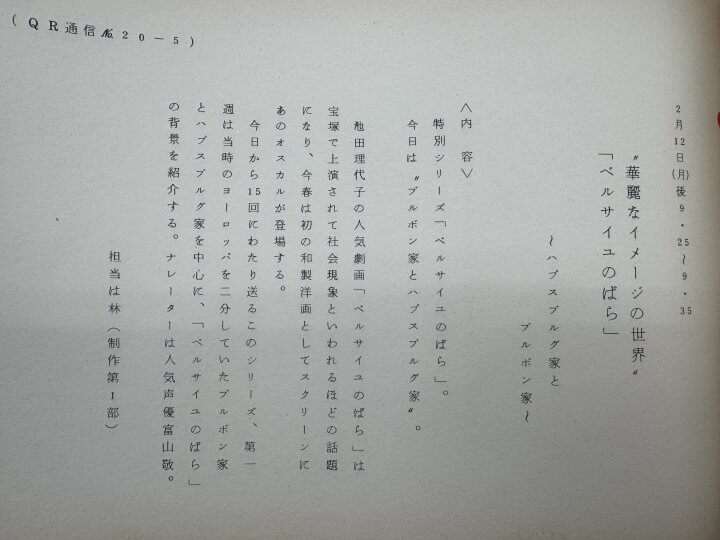 (QR通信No.20-5)
2月12日(月)後9・25〜9・35
〝華麗なイメージの世界〟
「ベルサイユのばら」
〜ハプスブルグ家と
ブルボン家〜
<内容>
特別シリーズ「ベルサイユのばら」。
今日は〝ブルボン家とハプスブルグ家〟。
池田理代子の人気劇画「ベルサイユのばら」は
宝塚で上演されて社会現象といわれるほどの話題
になり、今春は初の和製洋画としてスクリーンに
あのオスカルが登場する。
今日から15回にわたり送るこのシリーズ、第一
週は当時のヨーロッパを二分していたブルボン家
とハプスブルグ家を中心に、「ベルサイユのばら」
の背景を紹介する。ナレーターは人気声優富山敬。
担当は林(制作第1部)